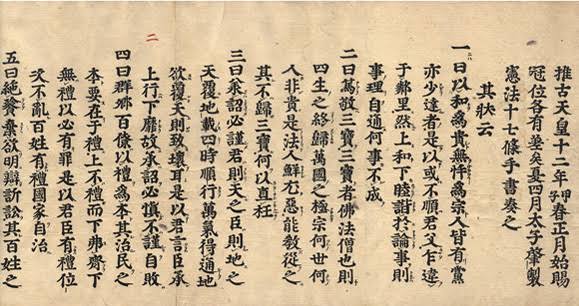 推古天皇十二年甲子春正月始賜
冠位各有差矣夏四月太子肇製
憲法十七條手書奏之
其狀云
一曰以和爲貴無忤爲宗人皆有黨
亦少達者是以或不順君父乍違
于鄰里然上和下睦諧於論事則
事理自通何事不成
二曰篤敬三寶三寶者佛法僧也則
四生之終歸萬國之極宗何世何
人非貴是法人鮮尤惡能敎從之
其不歸三寶何以直枉
三曰承詔必謹君則天之臣則地之
天覆地載四時順行萬氣得通地
欲覆天則致壞耳是以君言臣承
二
上行下靡故承詔必愼不謹自敗
四曰群卿百僚以禮爲本其治民之
本要在于禮上不禮而下弗齊下
無禮以必有罪是以君臣有禮位
次不亂百姓有禮國家自治
五曰絶餮棄欲明辯訴訟其百姓之